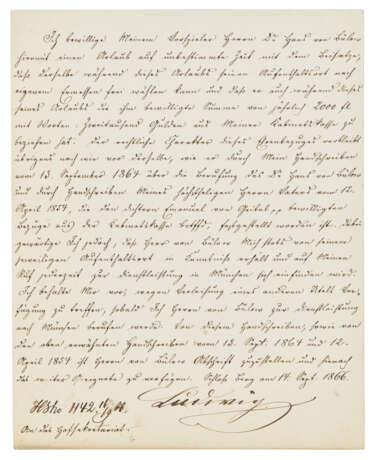 Ich bewillige Meinem Vorspieler Herrn Dr Hans von Bülow
hiermit einen Urlaub auf unbestimmte Zeit mit dem Beisatze,
daß derselbe während dieses Urlaubs seinen Aufenthaltsort nach
eigenem Ermessen frei wählen kann und daß er auch während dieses
seines Urlaubs die ihm bewilligte Summe von jährlich 2000 fl
mit Worten Zweitausend Gulden aus Meiner Kabinetskasse zu
beziehen hat. Der rechtliche Charakter dieses Geldbezuges verbleibt
übrigens nach wie vor derselbe, wie er durch Mein Handschreiben
vom 13. September 1864 über die Berufung des Dr Hans von Bülow
und durch Handschreiben Meines höchstseligen Herrn Vaters vom 12.
April 1854, die dem Dichter Emanuel von Geibel bewilligten
Bezüge aus der Kabinetskasse betfd., festgestellt worden ist. Dabei
gewärtige Ich jedoch, daß Herr von Bülow Mich stets von seinem
jeweiligen Aufenthaltsort in Kenntniß erhält und auf Meinen
Ruf jederzeit zur Dienstleistung in München sich einfinden wird.
Ich behalte Mir vor, wegen Verleihung eines anderen Titels Ver-
fügung zu treffen, sobald Ich Herrn von Bülow zur Dienstleistung
nach München berufen werde. Von diesem Handschreiben, sowie von
den oben erwähnten Handschreiben vom 13. Sept. 1864 und 12.
April 1854 ist Herrn von Bülow Abschrift zuzustellen und hienach
das weiter Geeignete zu verfügen. Schloß Berg am 14. Sept. 1866.
Ludwig
1142
An das Hofsekretariat.